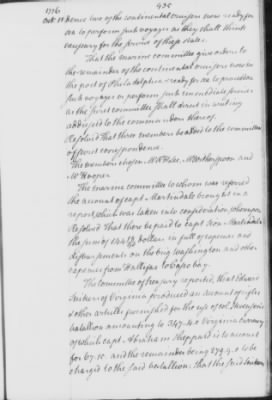 1776
435
Oct. 18. dence two of the continental cruisers now ready for
sea to perform such voyages as they shall think
necessary for the service of these states.
That the marine committee give orders to
the remainder of the continental cruisers now in
the port of Philadelphia & ready for sea to proceed on
such voyages or perform such
as the first committee shall direct in writing
addressed to the commanders thereof.
Resolved That three members be added to the committee
of secret correspondence.
The members chosen Mr R H Lee, Mr Witherspoon and
Mr Hooper
The marine committee to whom was referred
the account of capt Martindale brought in a
report which was taken into consideration whereupon
Resolved That there be paid to capt Sion Martindale
the sum of dollars in full of expences and
disbursements on the brig washington and other
expences from Halifax to Casco bay.
The Committee of treasury reported, that Edward
of Virginia produced an account of rifles
& other articles furnished for the use of col. Stevenson's
batallion amounting to 347.4.0 Virginia currency
of which capt. Abraham Sheppard is to account
for 67.10. and the remainder being 279.4.0 to be
charged to the said batallion: that the said